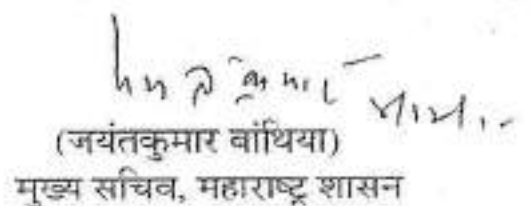 (जयंतकुमार बांथिया)
मुख्य सचिव, महाराष्ट्र शासन